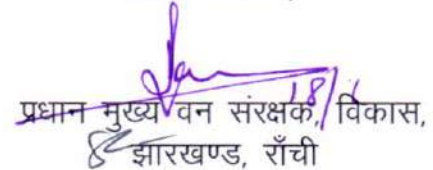 18/1
प्रधान मुख्य वन संरक्षक, विकास,
झारखण्ड, राँची